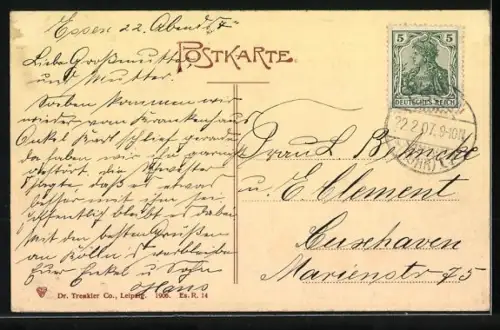 Essen 22. Abends 7
POSTKARTE
Liebe Großmutter
und Mutter.
Soeben kommen wir
wieder vom Krankenhaus
Onkel Karl schlief gerade
da haben wir ihn garnicht
gestört, die Schwester
sagte, daß es etwas
besser mit ihm sei,
hoffentlich bleibt es dabei
Mit den besten Grüßen
an verbleiben
Euer Enkel u. Sohn
Hans
5 5
DEUTSCHES REICH
22.2.07. 9-10
(RUHR)
Frau
u. E. Clement
Cuxhaven
Marienstr 75
Dr. Trenkler Co., Leipzig. 1906. Es. R. 14